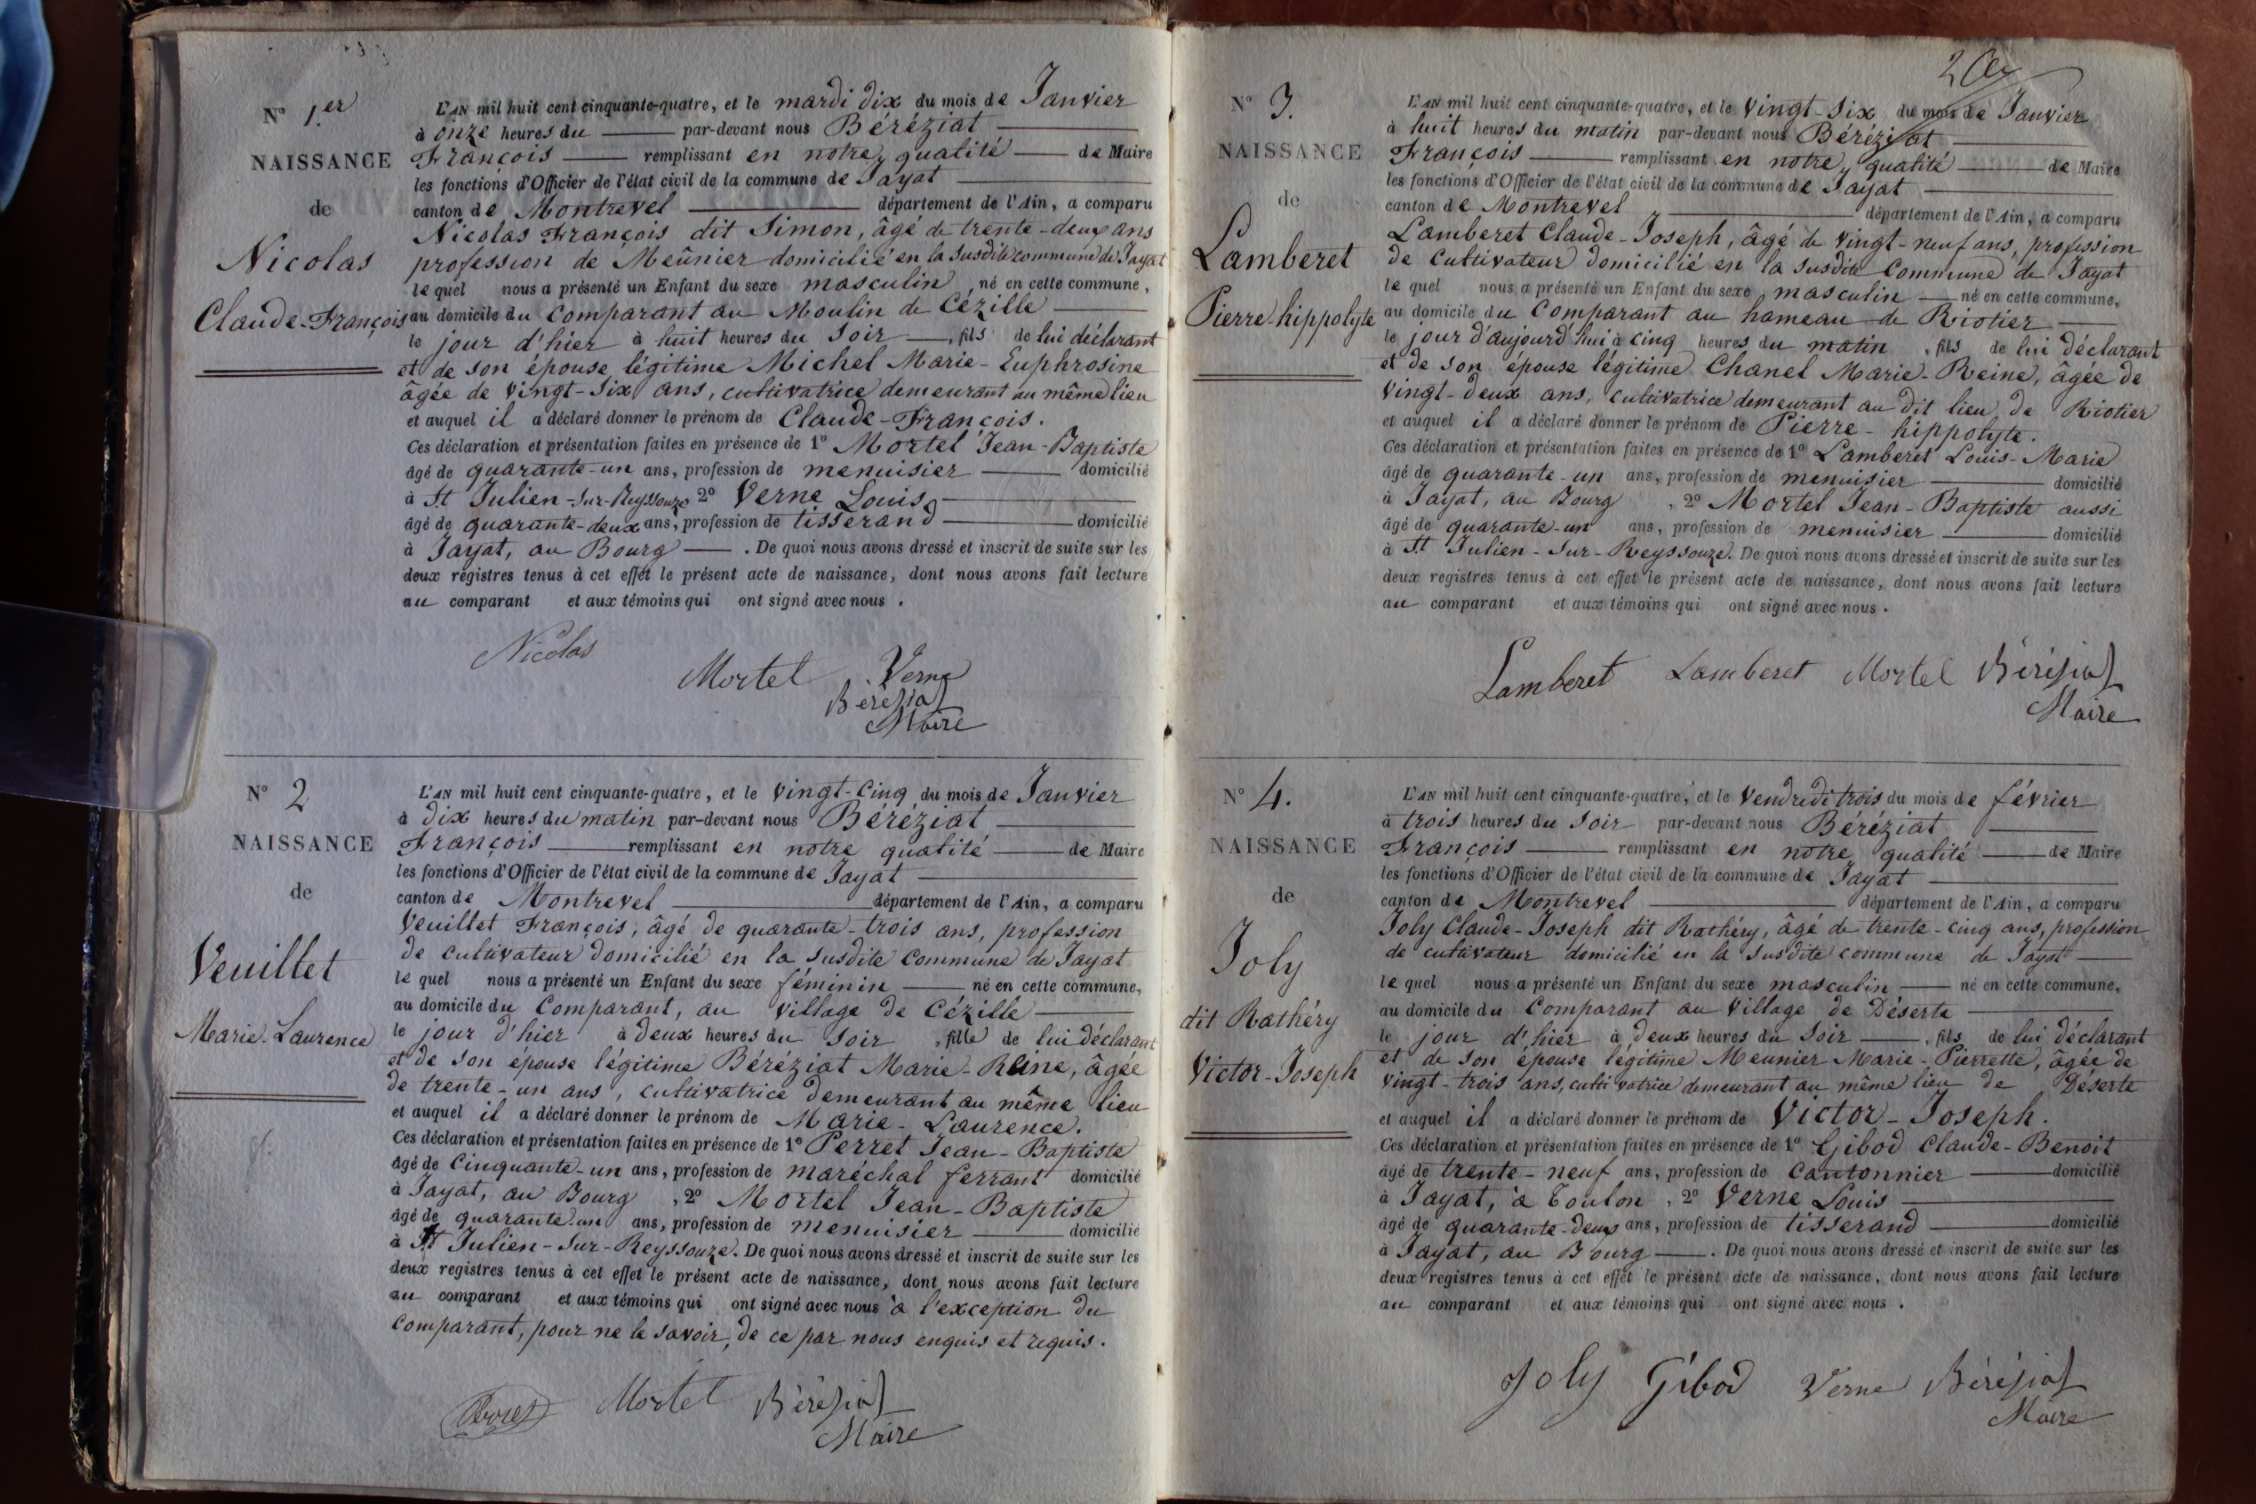 N° 1.er
NAISSANCE
de
Nicolas
Claude-François
L'AN mil huit cent cinquante-quatre, et le mardi dix du mois de Janvier
à onze heures du par-devant nous Béréziat
François remplissant en notre qualité de Maire
les fonctions d'Officier de l'état civil de la commune de Jayat
canton de Montrevel département de l'Ain, a comparu
Nicolas François dit Simon, âgé de trente-deux ans
profession de Meûnier domicilié en la susdite commune de Jayat
lequel nous a présenté un Enfant du sexe masculin, né en cette commune,
au domicile du comparant au Moulin de Cézille
le jour d'hier à huit heures du soir, fils de lui déclarant
et de son épouse légitime Michel Marie-Euphrosine
âgée de vingt-six ans, cultivatrice demeurant au même lieu
et auquel il a déclaré donner le prénom de Claude-François.
Ces déclaration et présentation faites en présence de 1° Mortel Jean-Baptiste
âgé de quarante-un ans, profession de menuisier domicilié
à St Julien-sur-Reyssouze 2° Verne Louis
âgé de quarante-deux ans, profession de tisserand domicilié
à Jayat, au Bourg . De quoi nous avons dressé et inscrit de suite sur les
deux registres tenus à cet effet le présent acte de naissance, dont nous avons fait lecture
au comparant et aux témoins qui ont signé avec nous.
Nicolas
Mortel Verne
Béréziat
Maire
N° 2
NAISSANCE
de
Veuillet
Marie-Laurence
L'AN mil huit cent cinquante-quatre, et le vingt-cinq du mois de Janvier
à dix heures du matin par-devant nous Béréziat
François remplissant en notre qualité de Maire
les fonctions d'Officier de l'état civil de la commune de Jayat
canton de Montrevel département de l'Ain, a comparu
Veuillet François, âgé de quarante-trois ans, profession
de cultivateur domicilié en la susdite commune de Jayat
lequel nous a présenté un Enfant du sexe féminin né en cette commune,
au domicile du comparant, au village de Cézille
le jour d'hier à deux heures du soir, fille de lui déclarant
et de son épouse légitime Béréziat Marie-Reine, âgée
de trente-un ans, cultivatrice demeurant au même lieu
et auquel il a déclaré donner le prénom de Marie-Laurence.
Ces déclaration et présentation faites en présence de 1° Perret Jean-Baptiste
âgé de cinquante-un ans, profession de maréchal ferrant domicilié
à Jayat, au Bourg, 2° Mortel Jean-Baptiste
âgé de quarante-un ans, profession de menuisier domicilié
à St Julien-sur-Reyssouze. De quoi nous avons dressé et inscrit de suite sur les
deux registres tenus à cet effet le présent acte de naissance, dont nous avons fait lecture
au comparant et aux témoins qui ont signé avec nous à l'exception du
comparant, pour ne le savoir, de ce par nous enquis et requis.
Mortel Béréziat
Maire
2
N° 3.
NAISSANCE
de
Lamberet
Pierre-hippolyte
L'AN mil huit cent cinquante-quatre, et le vingt-six du mois de Janvier
à huit heures du matin par-devant nous Béréziat
François remplissant en notre qualité de Maire
les fonctions d'Officier de l'état civil de la commune de Jayat
canton de Montrevel département de l'Ain, a comparu
Lamberet Claude-Joseph, âgé de vingt-neuf ans, profession
de cultivateur domicilié en la susdite commune de Jayat
lequel nous a présenté un Enfant du sexe masculin né en cette commune,
au domicile du comparant au hameau de Riotier
le jour d'aujourd'hui à cinq heures du matin, fils de lui déclarant
et de son épouse légitime Chanel Marie-Reine, âgée de
vingt-deux ans, cultivatrice demeurant au dit lieu de Riotier
et auquel il a déclaré donner le prénom de Pierre-hippolyte.
Ces déclaration et présentation faites en présence de 1° Lamberet Louis-Marie
âgé de quarante-un ans, profession de menuisier domicilié
à Jayat, au Bourg, 2° Mortel Jean-Baptiste aussi
âgé de quarante-un ans, profession de menuisier domicilié
à St Julien-sur-Reyssouze. De quoi nous avons dressé et inscrit de suite sur les
deux registres tenus à cet effet le présent acte de naissance, dont nous avons fait lecture
au comparant et aux témoins qui ont signé avec nous.
Lamberet Lamberet Mortel Béréziat
Maire
N° 4.
NAISSANCE
de
Joly
dit Rathéry
Victor-Joseph
L'AN mil huit cent cinquante-quatre, et le vendredi trois du mois de février
à trois heures du soir par-devant nous Béréziat
François remplissant en notre qualité de Maire
les fonctions d'Officier de l'état civil de la commune de Jayat
canton de Montrevel département de l'Ain, a comparu
Joly Claude-Joseph dit Rathéry, âgé de trente-cinq ans, profession
de cultivateur domicilié en la susdite commune de Jayat
lequel nous a présenté un Enfant du sexe masculin né en cette commune,
au domicile du comparant au village de Déserte
le jour d'hier à deux heures du soir, fils de lui déclarant
et de son épouse légitime Meunier Marie-Pierrette, âgée de
vingt-trois ans, cultivatrice demeurant au même lieu de Déserte
et auquel il a déclaré donner le prénom de Victor-Joseph.
Ces déclaration et présentation faites en présence de 1° Gibod Claude-Benoit
âgé de trente-neuf ans, profession de cantonnier domicilié
à Jayat, à Toulon, 2° Verne Louis
âgé de quarante-deux ans, profession de tisserand domicilié
à Jayat, au Bourg . De quoi nous avons dressé et inscrit de suite sur les
deux registres tenus à cet effet le présent acte de naissance, dont nous avons fait lecture
au comparant et aux témoins qui ont signé avec nous.
Joly Gibod Verne Béréziat
Maire